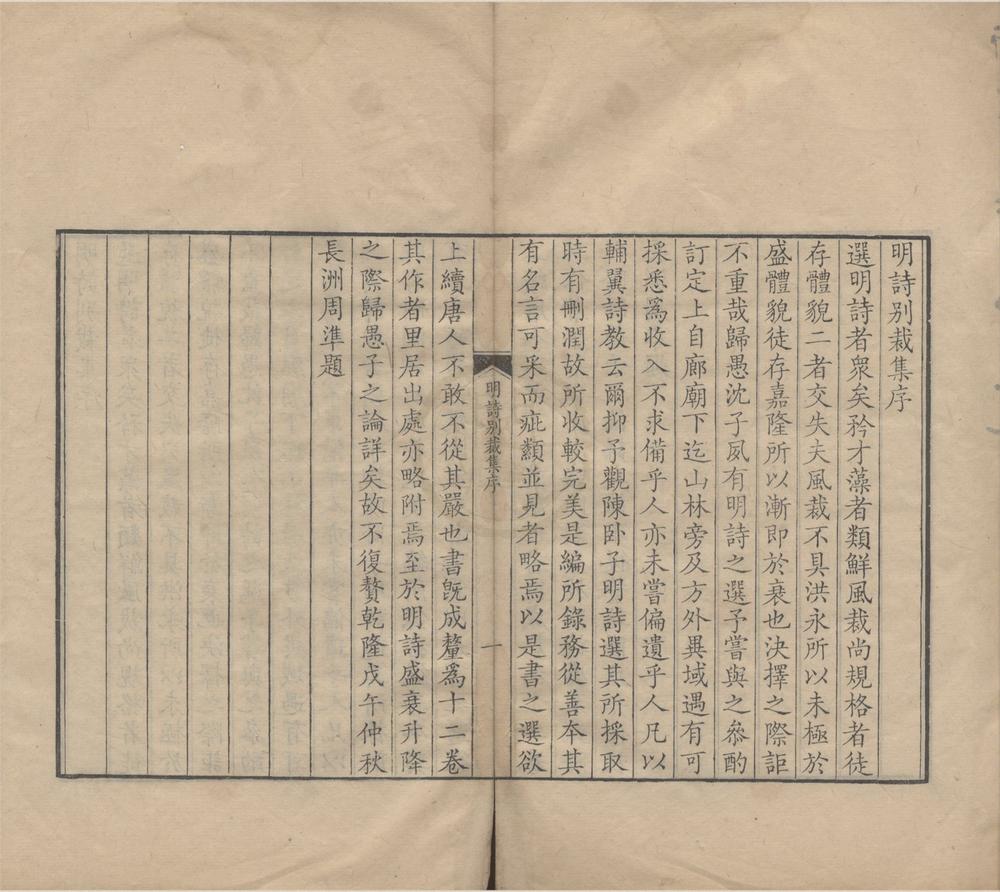 明詩別裁集序
選明詩者衆矣矜才藻者類鮮風裁尚規格者徒
存體貌二者交失夫風裁不具洪永所以未極於
盛體貌徒存嘉隆所以漸即於衰也決擇之際詎
不重哉歸愚沈子夙有明詩之選予嘗與之叅酌
訂定上自廊廟下迄山林旁及方外異域遇有可
採悉爲收入不求備乎人亦未嘗偏遺乎人凡以
輔翼詩教云爾抑予觀陳卧子明詩選其所採取
時有刪潤故所收較完美是編所錄務從善本其
有名言可采而疵纇並見者略焉以是書之選欲
明詩別裁集序
一
上續唐人不敢不從其嚴也書旣成釐爲十二卷
其作者里居出處亦略附焉至於明詩盛衰升降
之際歸愚子之論詳矣故不復贅乾隆戊午仲秋
長洲周準題